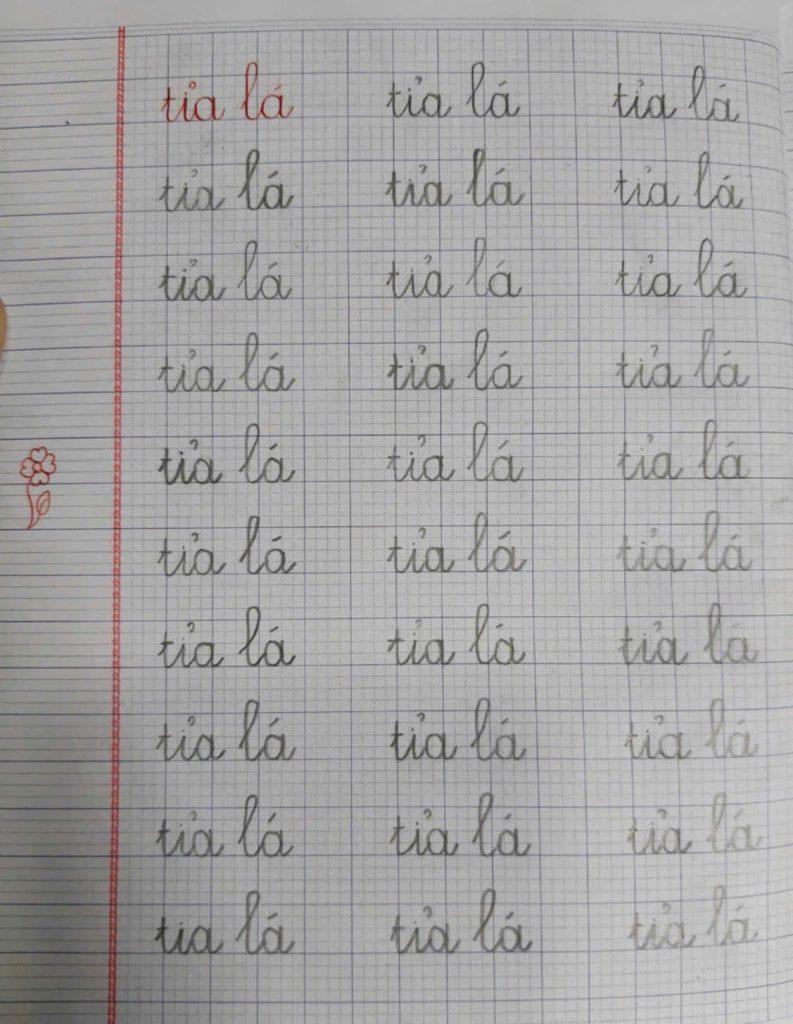 tỉa lá tỉa lá tỉa lá
tỉa lá tỉa lá tỉa lá
tỉa lá tỉa lá tỉa lá
tỉa lá tỉa lá tỉa lá
tỉa lá tỉa lá tỉa lá
tỉa lá tỉa lá tỉa lá
tỉa lá tỉa lá tỉa lá
tỉa lá tỉa lá tỉa lá
tỉa lá tỉa lá tỉa lá
tỉa lá tỉa lá tỉa lá